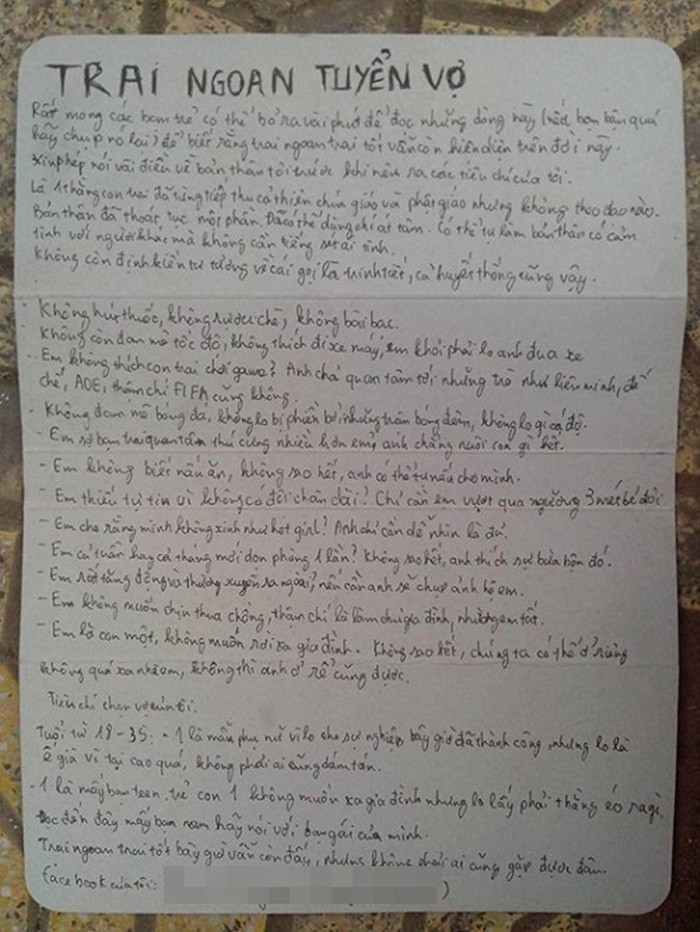 TRAI NGOAN TUYỂN VỢ
Rất mong các bem trẻ có thể bỏ ra vài phút để đọc những dòng này (nếu bạn bận quá
hãy chụp nó lại) để biết rằng trai ngoan trai tốt vẫn còn hiện diện trên đời này.
Xin phép nói vài điều về bản thân tôi trước khi nêu ra các tiêu chí của tôi.
Là 1 thằng con trai đã từng tiếp thu cả thiên chúa giáo và phật giáo nhưng không theo đạo nào.
Bản thân đã thoát tục một phần. Đã có thể dùng chí ái tâm. Có thể tự làm bản thân có cảm
tình với người khác mà không cần tiếng sét ái tình.
Không còn định kiến tư tưởng về cái gọi là trinh tiết, cả huyết thống cũng vậy.
- Không hút thuốc, không rượu chè, không bài bạc.
- Không còn đam mê tốc độ, không thích đi xe máy, em khỏi phải lo anh đua xe
- Em không thích con trai chơi game? Anh chả quan tâm tới những trò như liên minh, đế
chế, AOE, thậm chí FIFA cũng không.
- Không đam mê bóng đá, không lo bị phiền bởi những trận bóng đêm, không lo gì cá độ.
- Em sợ bạn trai quan tâm thú cưng nhiều hơn em? anh chẳng nuôi con gì hết.
- Em không biết nấu ăn, không sao hết, anh có thể tự nấu cho mình.
- Em thiếu tự tin vì không có đôi chân dài? Chỉ cần em vượt qua ngưỡng 3 mét bẻ đôi
- Em cho rằng mình không xinh như hot girl? Anh chỉ cần dễ nhìn là đủ.
- Em cả tuần hay cả tháng mới dọn phòng 1 lần? Không sao hết, anh thích sự bừa bộn đó.
- Em rất tăng động và thường xuyên ra ngoài, nếu cần anh sẽ chụp ảnh hộ em.
- Em không muốn chịu thua chồng, thậm chí là làm chủ gia đình, nhường em tất.
- Em là con một, không muốn rời xa gia đình. Không sao hết, chúng ta có thể ở riêng
không quá xa nhà em, không thì anh ở rể cũng được.
Tiêu chí chọn vợ của tôi.
Tuổi từ 18 - 35: - 1 là mẫu phụ nữ vì lo cho sự nghiệp, bây giờ đã thành công, nhưng lo là
ế già vì tại cao quá, không phải ai cũng dám tán.
- 1 là mấy bạn teen trẻ con 1 không muốn xa gia đình nhưng lo lấy phải thằng éo ra gì.
Đọc đến đây mấy bạn nam hãy nói với bạn gái của mình.
Trai ngoan trai tốt bây giờ vẫn còn đấy, nhưng không phải ai cũng gặp được đâu.
facebook của tôi: )